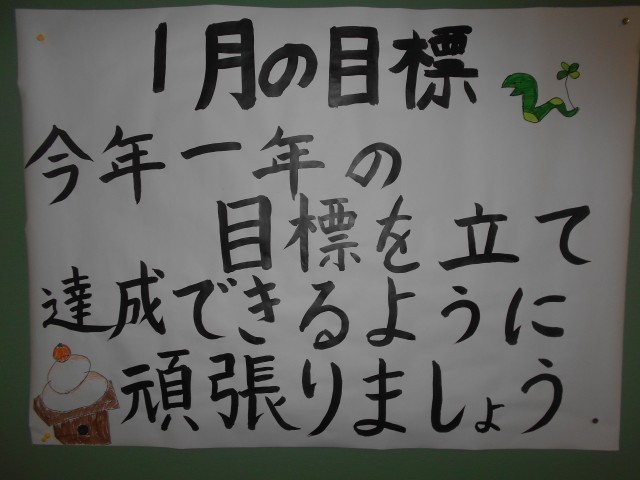 1月の目標
今年一年の
目標を立て
達成できるように
頑張りましょう.